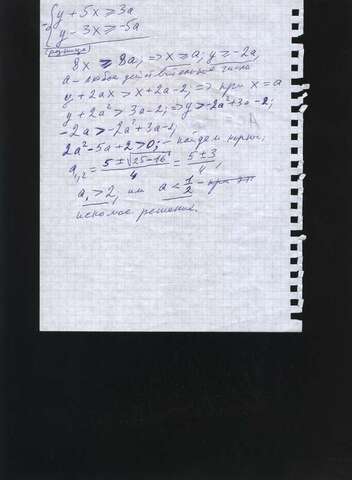 { y + 5x ≥ 3a
- y - 3x ≥ -5a
(разница)
8x ≥ 8a, ⇒ x ≥ a; y ≥ -2a,
a - любое действительное число
y + 2ax > x + 2a - 2, ⇒ при x = a
y + 2a² > 3a - 2; ⇒ y > -2a² + 3a - 2;
-2a > -2a² + 3a - 2;
2a² - 5a + 2 > 0; - найдем корни;
a₁,₂ = (5 ± √(25 - 16))/4 = (5 ± 3)/4,
a₁ > 2, или a < 1/2 -
искомое решение.